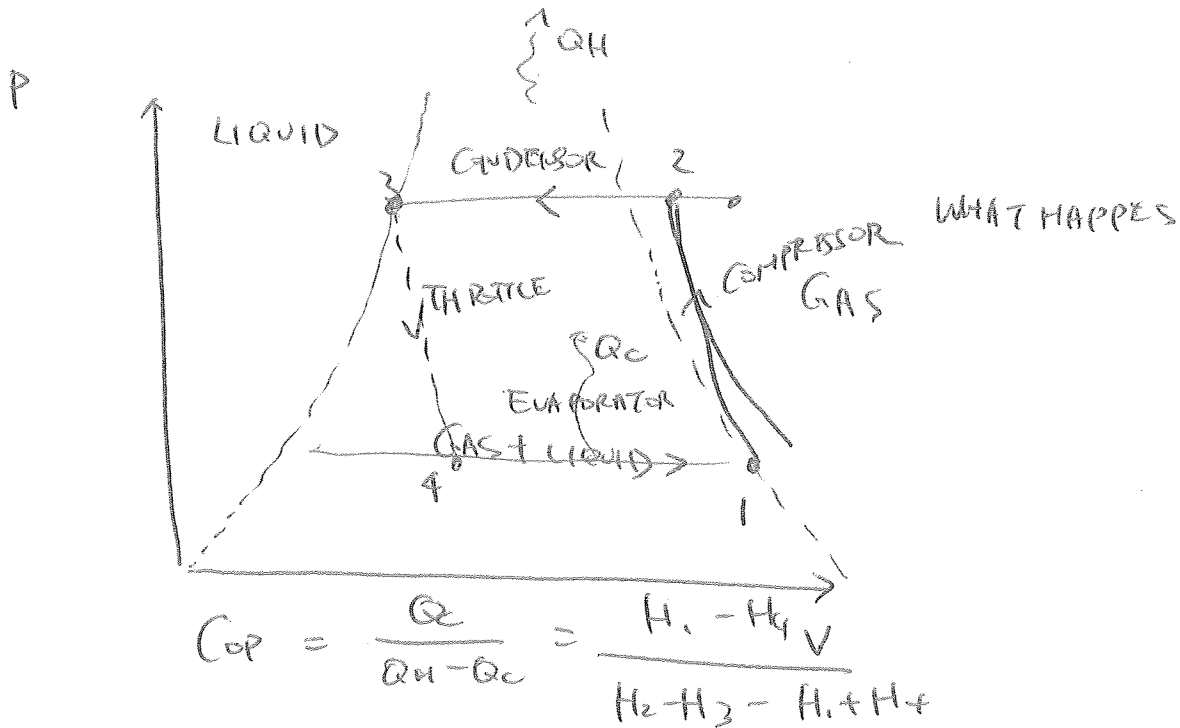 QH
P
LIQUID
CONDENSOR
3
2
WHAT HAPPES
COMPRESSOR
THROTTLE
GAS
Qc
EVAPORATOR
GAS + LIQUID
4
1
V
COP = Qc / QH - Qc = H1 - H4 / H2 - H3 - H1 + H4